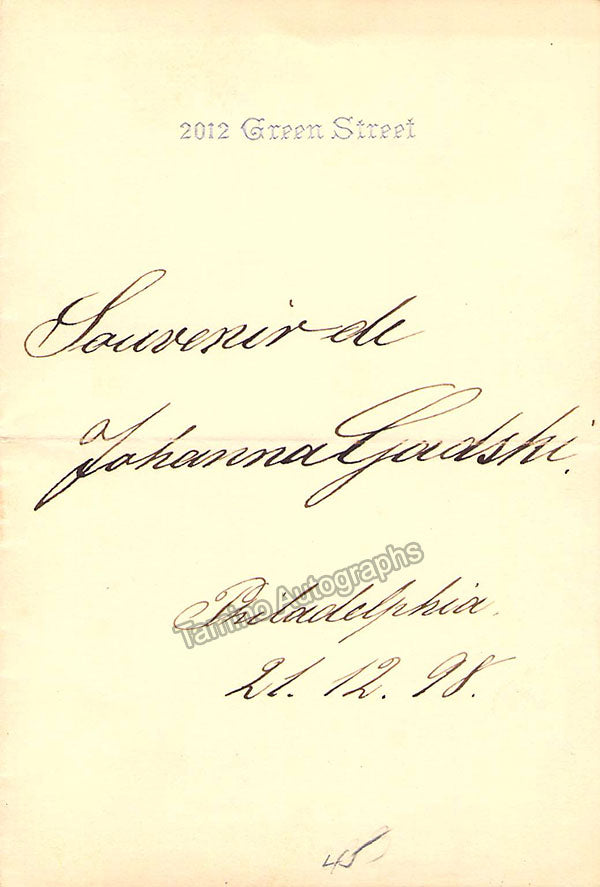 2012 Green Street
Souvenir de
Johanna Gadski.
Philadelphia.
Tamino Autographs
21. 12. 98.
45